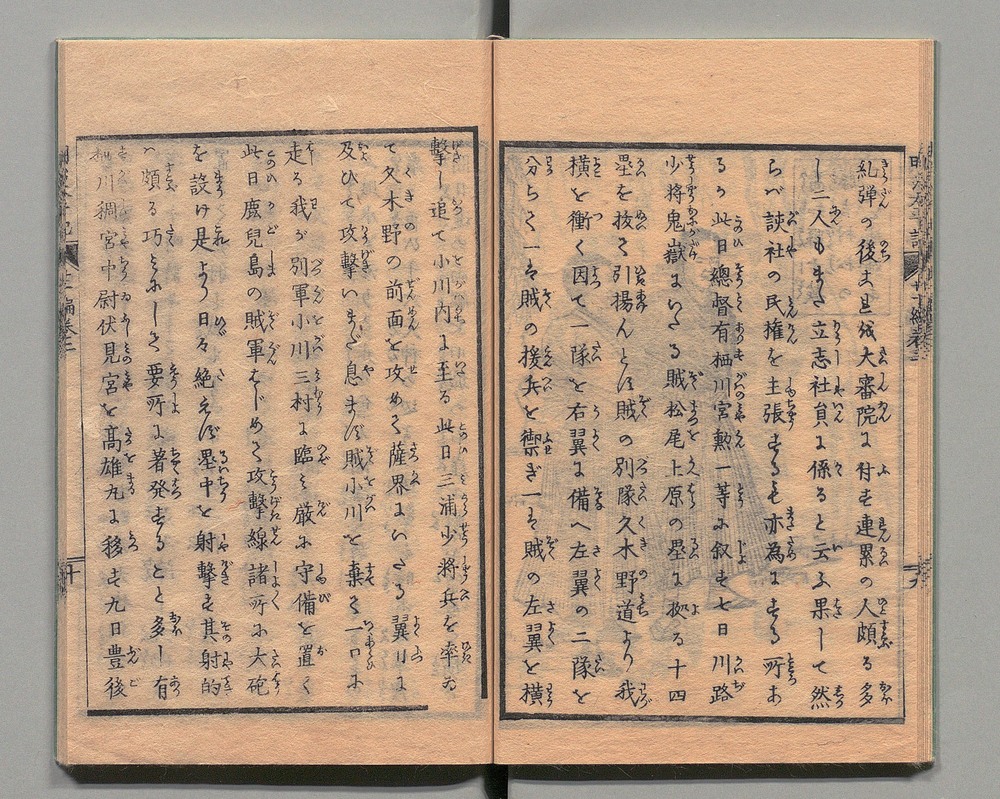 糺弾の後丈是を大審院に付せ連累の人頗る多
し二人もまた立志社員に係ると云ふ果して然
らバ該社の民権を主張するも亦為にする所あ
るか此日總督有栖川宮勲一等に叙せ七日川路
少将鬼嶽にいたる賊松尾上原の塁に拠る十四
塁を抜き引揚んとす賊の別隊久木野道より我
横を衝く因て一隊を右翼に備へ左翼の二隊を
分ちて一ハ賊の援兵を禦ぎ一ハ賊の左翼を横
撃し追て小川内に至る此日三浦少将兵を率ゐ
て久木野の前面を攻めて薩界にいたる翼日に
及びて攻撃いまだ息まず賊小川を棄て一口に
走る我が別軍小川三村に臨み厳に守備を置く
此日鹿児島の賊軍はじめて攻撃線諸所に大砲
を設け是より日々絶えず塁中を射撃す其射的
ハ頗る巧みにして要所に著発することと多し有
栖川稠宮中尉伏見宮を高雄丸に移す九日豊後